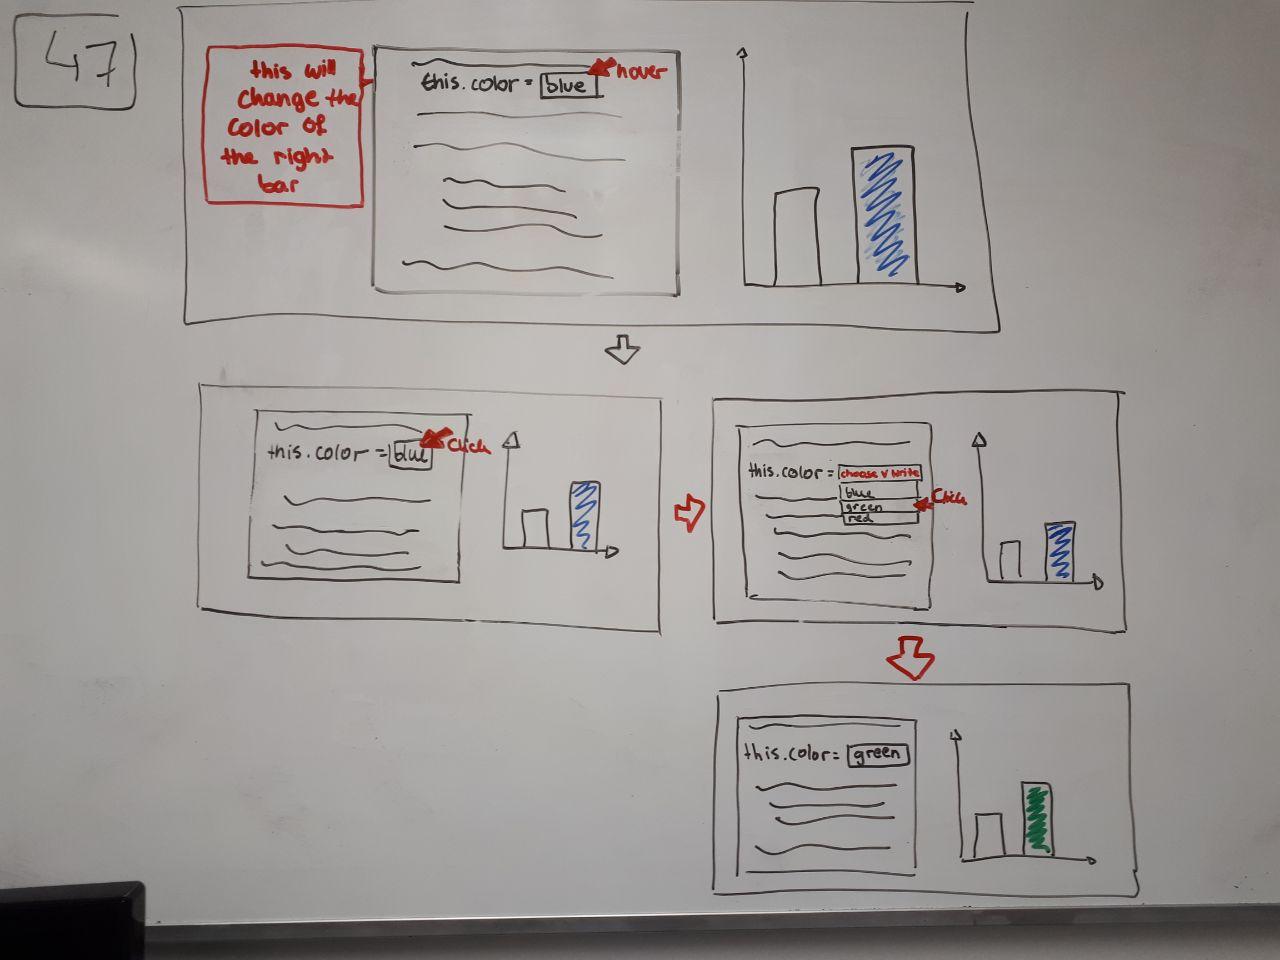 47
this will
change the
color of
the right
bar
this.color = blue
hover
this.color = blue
click
this.color = choose v write
blue
green
red
Click
this.color= green